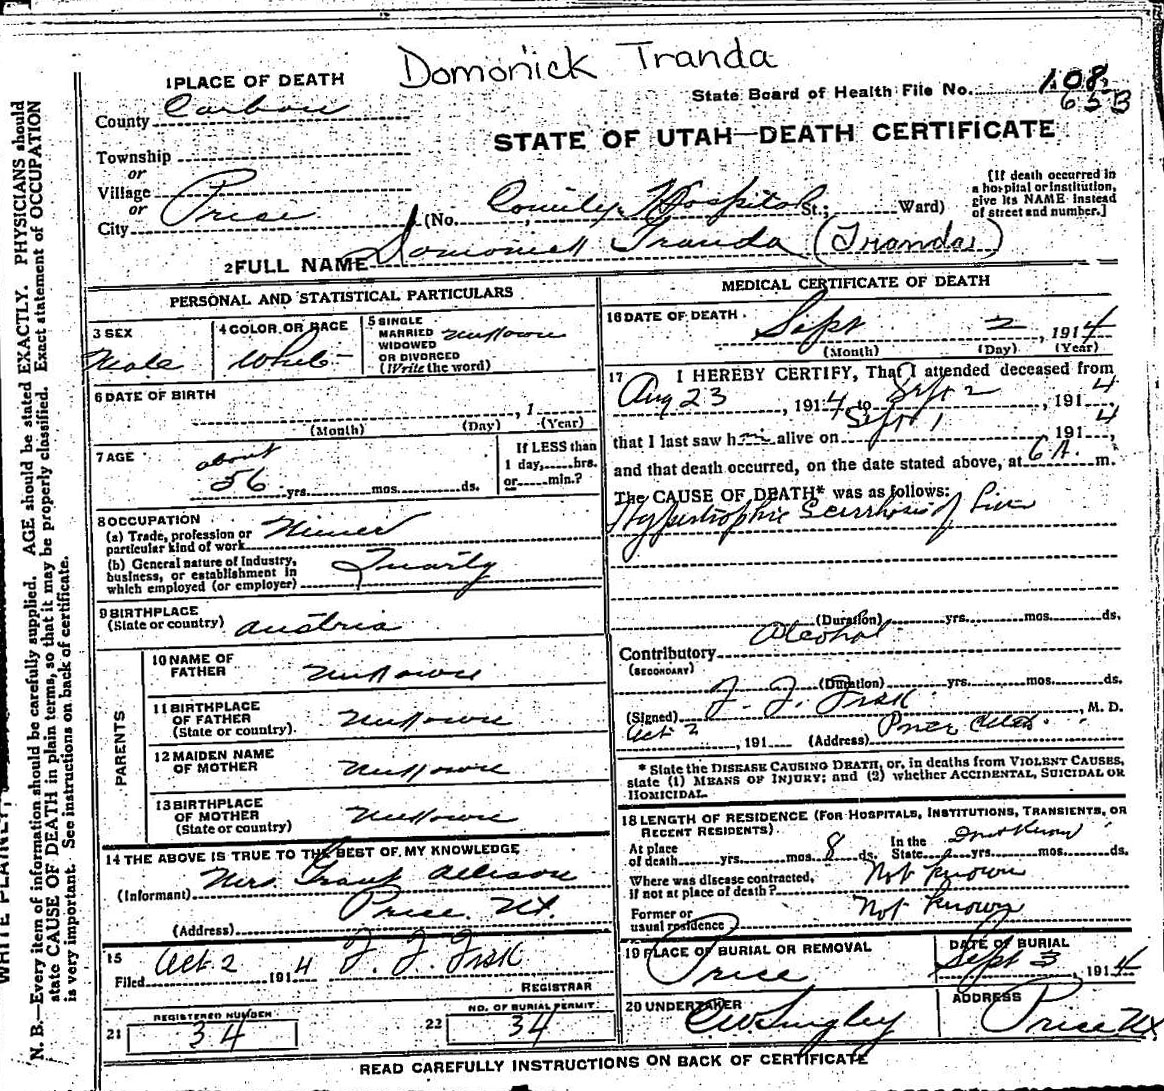 Domonick Tranda
1 PLACE OF DEATH
State Board of Health File No. 108
65B
County Carbon
STATE OF UTAH—DEATH CERTIFICATE
Township
or
Village
or
City Price
(No. County Hospital St.; Ward)
[If death occurred in
a hospital or institution,
give its NAME instead
of street and number.]
2 FULL NAME Domonick Tranda (Tranda)
PERSONAL AND STATISTICAL PARTICULARS
3 SEX
Male
4 COLOR OR RACE
White
5 SINGLE
MARRIED
WIDOWED
OR DIVORCED
(Write the word)
unknown
6 DATE OF BIRTH
, 1
(Month) (Day) (Year)
7 AGE
about
56 yrs. mos. ds.
If LESS than
1 day, hrs.
or min.?
8 OCCUPATION
(a) Trade, profession or
particular kind of work
Miner
(b) General nature of Industry,
business, or establishment in
which employed (or employer)
9 BIRTHPLACE
(State or country) Austria
PARENTS
10 NAME OF
FATHER
Unknown
11 BIRTHPLACE
OF FATHER
(State or country).
Unknown
12 MAIDEN NAME
OF MOTHER
Unknown
13 BIRTHPLACE
OF MOTHER
(State or country)
Unknown
14 THE ABOVE IS TRUE TO THE BEST OF MY KNOWLEDGE
(Informant) Mrs. Grant Allison
(Address) Price. Ut.
15
Filed Oct. 2 1914 F. F. Fisk
REGISTRAR
21
REGISTERED NUMBER
34
22
NO. OF BURIAL PERMIT
34
MEDICAL CERTIFICATE OF DEATH
16 DATE OF DEATH
Sept 2, 1914
(Month) (Day) (Year)
17 I HEREBY CERTIFY, That I attended deceased from
Aug 23, 1914 to Sept 2, 1914
that I last saw him alive on Sept 1 1914,
and that death occurred, on the date stated above, at 6 A. m.
The CAUSE OF DEATH* was as follows:
Hypertrophic Scirrhosis of Liver
(Duration) yrs. mos. ds.
Contributory Alcohol
(SECONDARY)
(Duration) yrs. mos. ds.
(Signed) F. F. Fisk, M. D.
Oct. 2, 191 (Address) Price Utah.
* State the DISEASE CAUSING DEATH, or, in deaths from VIOLENT CAUSES,
state (1) MEANS OF INJURY; and (2) whether ACCIDENTAL, SUICIDAL OR
HOMICIDAL.
18 LENGTH OF RESIDENCE (FOR HOSPITALS, INSTITUTIONS, TRANSIENTS, OR
RECENT RESIDENTS)
At place
of death yrs. mos. 8 ds.
In the
State yrs. mos. ds.
Where was disease contracted,
if not at place of death?
Not known
Former or
usual residence
Not known
19 PLACE OF BURIAL OR REMOVAL
Price
DATE OF BURIAL
Sept 3, 1914
20 UNDERTAKER
ADDRESS
Price Ut
READ CAREFULLY INSTRUCTIONS ON BACK OF CERTIFICATE
N. B.—Every item of information should be carefully supplied. AGE should be stated EXACTLY. PHYSICIANS should
state CAUSE OF DEATH in plain terms, so that it may be properly classified. Exact statement of OCCUPATION
is very important. See instructions on back of certificate.